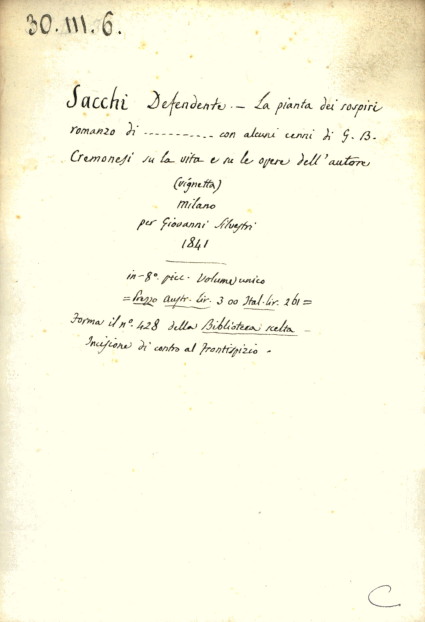 30.III.6.
Sacchi Defendente. — La pianta dei sospiri
romanzo di ---------- con alcuni cenni di G. B.
Cremonesi su la vita e su le opere dell'autore
(vignetta)
milano
per Giovanni Silvestri
1841
in-8°. picc. Volume unico
= Prezzo Austr. lir. 3 00 Ital. lir. 2 61 =
Forma il n°. 428 della Biblioteca scelta —
Incisione di contro al frontispizio.
C